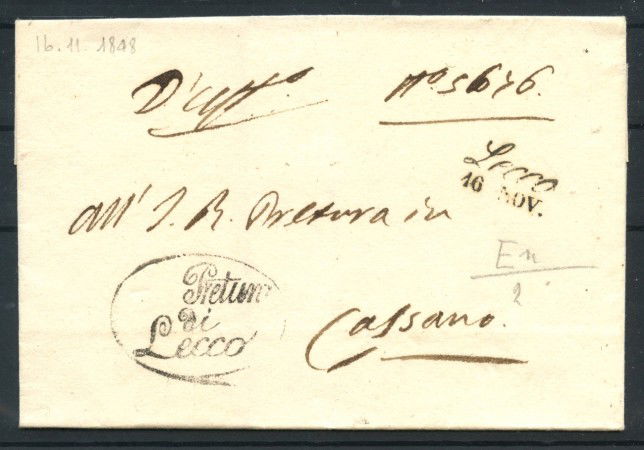 16.11.1848
D'Uff.º Nº 5676.
Lecco
16 NOV.
all' I. R. Pretura in
En
2
Pretura
di
Lecco
Cassano.